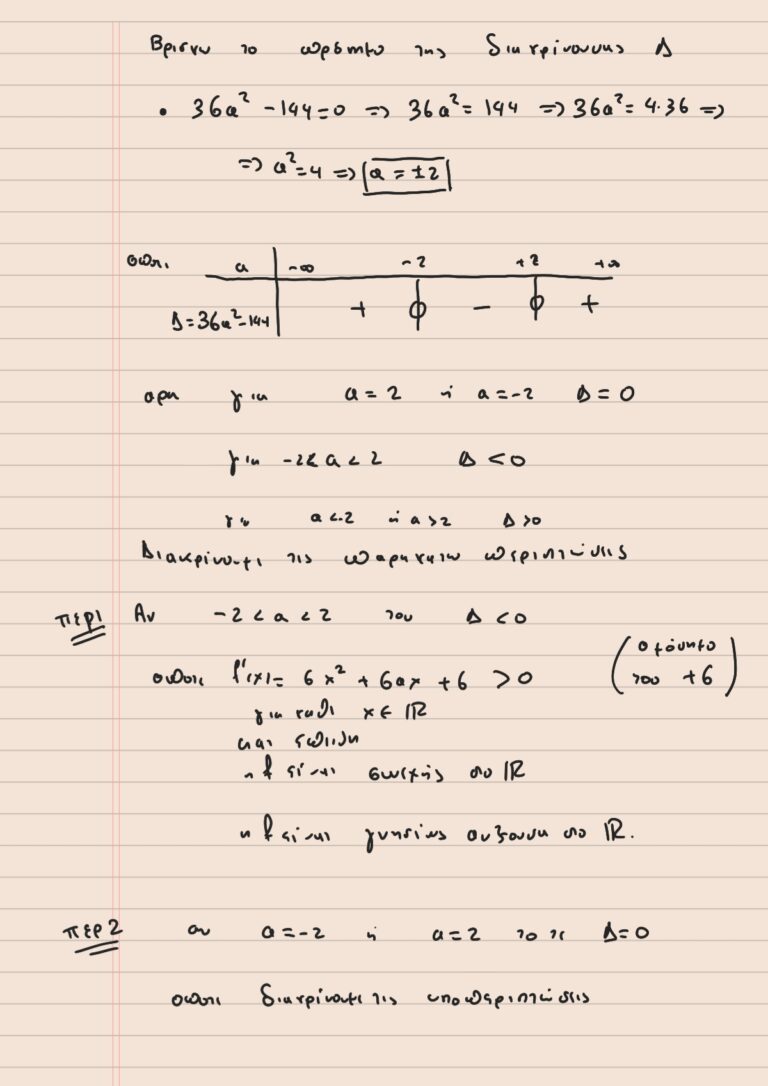 Βρισκω το προσημο της διακρινουσας Δ
• 36α² - 144 = 0 => 36α² = 144 => 36α² = 4·36 =>
=> α² = 4 => α = ±2
οποτε
α -∞ -2 +2 +∞
Δ = 36α² - 144 + 0 - 0 +
αρα για α = 2 ή α = -2 Δ = 0
για -2 < α < 2 Δ < 0
για α < -2 ή α > 2 Δ > 0
Διακρίνουμε τις παρακατω περιπτώσεις
περ1 Αν -2 < α < 2 τοτε Δ < 0
οποτε f'(x) = 6x² + 6αx + 6 > 0 (ομόσημο
του +6)
για καθε x ∈ ℝ
και επειδη
η f είναι συνεχής στο ℝ
η f είναι γνησίως αυξουσα στο ℝ.
περ2 αν α = -2 ή α = 2 τοτε Δ = 0
οποτε διακρίνουμε τις υποπεριπτώσεις